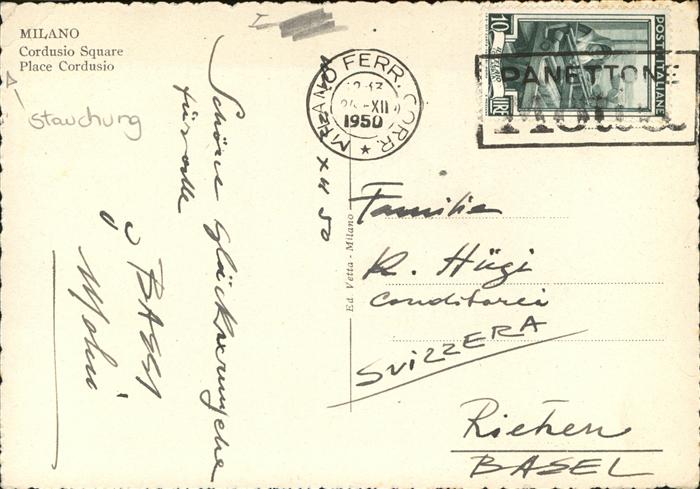 MILANO
Cordusio Square
Place Cordusio
stauchung
MILANO FERR. CORR.
XII
1950
10
LIRE
POSTE ITALIANE
PANETTONE
Motta
XII 50
Schöne Glückwünsche
für alle
Ed. Vetta - Milano
Familie
R. Hügi
Conditorei
SVIZZERA
Riehen
BASEL